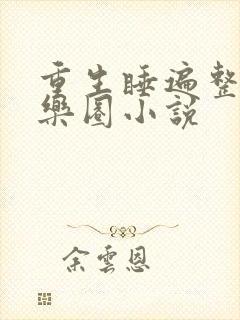 重生睡遍整
樂圈小説
余雲恩